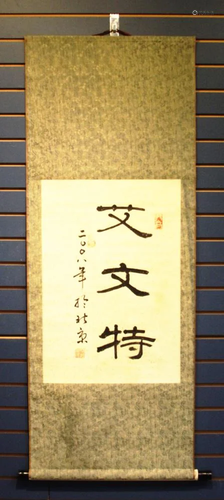 艾文特
二〇〇八年於北京